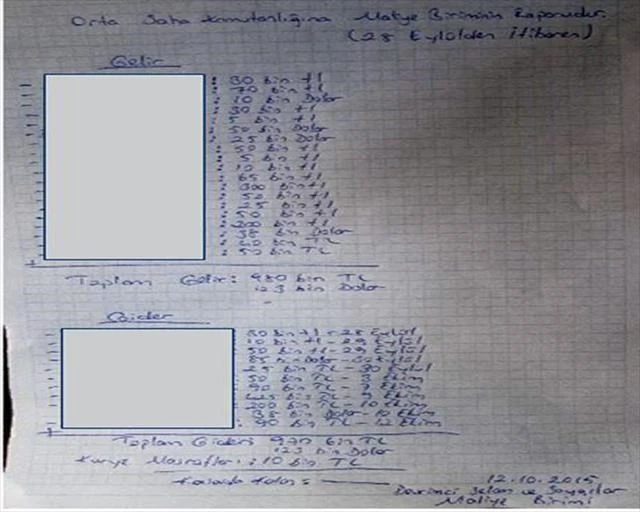 Orta Saha Komutanlığına Maliye Biriminin Raporudur.
(28 Eylülden İtibaren)
Gelir
: 30 bin tl
: 70 bin tl
: 10 bin Dolar
: 30 bin tl
: 5 bin tl
: 50 bin Dolar
: 25 bin Dolar
: 50 bin tl
: 5 bin tl
: 10 bin tl
: 65 bin tl
: 300 bin tl
: 50 bin tl
: 25 bin tl
: 50 bin tl
: 200 bin tl
: 38 bin Dolar
bin TL
: 50 bin TL
Toplam Gelir: 980 bin TL
123 bin Dolar
Gider
bin tl - 28 Eylül
10 bin tl - 29 Eylül
50 bin tl - 29 Eylül
85 bin Dolar - Eylül
bin TL - 30 Eylül
50 bin TL - Ekim
90 bin TL - Ekim
bin TL - 9 Ekim
200 bin TL - 10 Ekim
38 bin Dolar - 10 Ekim
90 bin TL - 12 Ekim
Toplam Gider: 970 bin TL
123 bin Dolar
Kurye Masrafları: 10 bin TL
Kasada Kalan: —
12.10.2015
Devrimci Selam ve Saygılar
Maliye Birimi